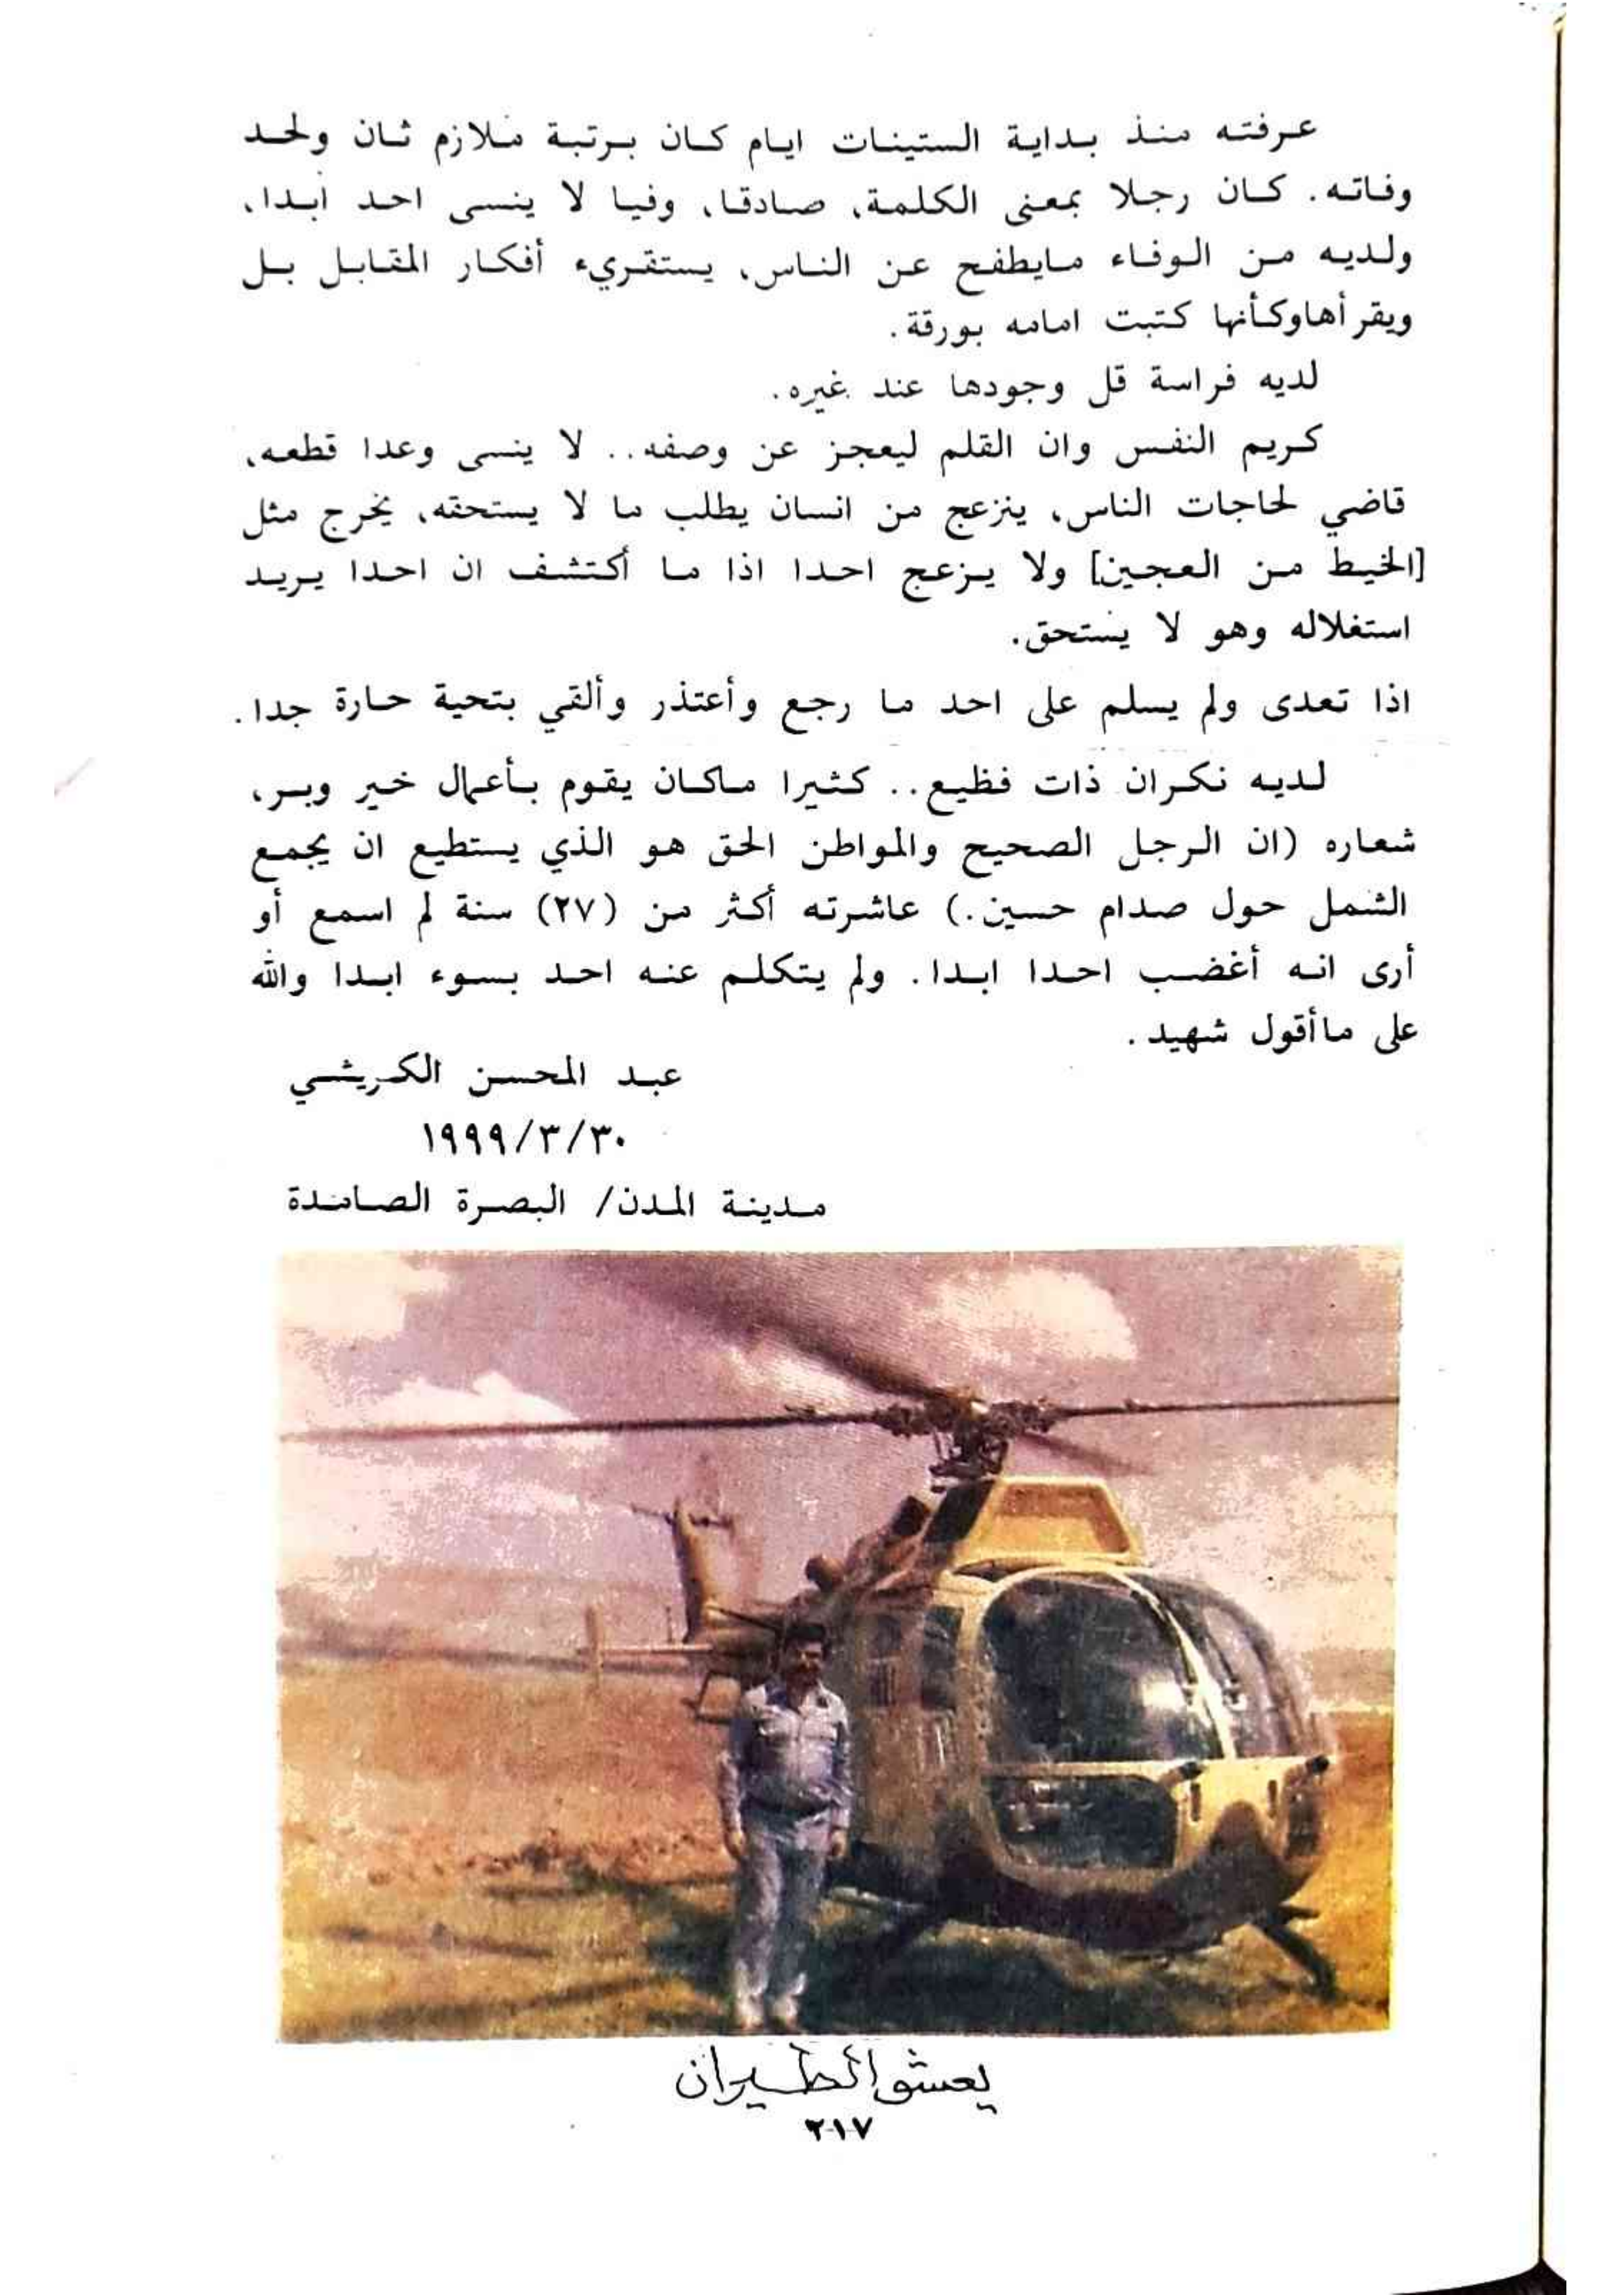 عرفته منذ بداية الستينات ايام كان برتبة ملازم ثان ولحد
وفاته. كان رجلا بمعنى الكلمة، صادقا، وفيا لا ينسى احد ابدا،
ولديه من الوفاء مايطفح عن الناس، يستقريء أفكار المقابل بل
ويقرأهاوكأنها كتبت امامه بورقة.
لديه فراسة قل وجودها عند غيره.
كريم النفس وان القلم ليعجز عن وصفه.. لا ينسى وعدا قطعه،
قاضي لحاجات الناس، ينزعج من انسان يطلب ما لا يستحقه، يخرج مثل
[الخيط من العجين] ولا يزعج احدا اذا ما أكتشف ان احدا يريد
استغلاله وهو لا يستحق.
اذا تعدى ولم يسلم على احد ما رجع وأعتذر وألقي بتحية حارة جدا.
لديه نكران ذات فظيع.. كثيرا ماكان يقوم بأعمال خير وبر،
شعاره (ان الرجل الصحيح والمواطن الحق هو الذي يستطيع ان يجمع
الشمل حول صدام حسين.) عاشرته أكثر من (٢٧) سنة لم اسمع أو
أرى انه أغضب احدا ابدا. ولم يتكلم عنه احد بسوء ابدا والله
على ماأقول شهيد.
عبد المحسن الكريشي
١٩٩٩/٣/٣٠
مدينة المدن/ البصرة الصامدة
يعشق الطيران
٢١٧